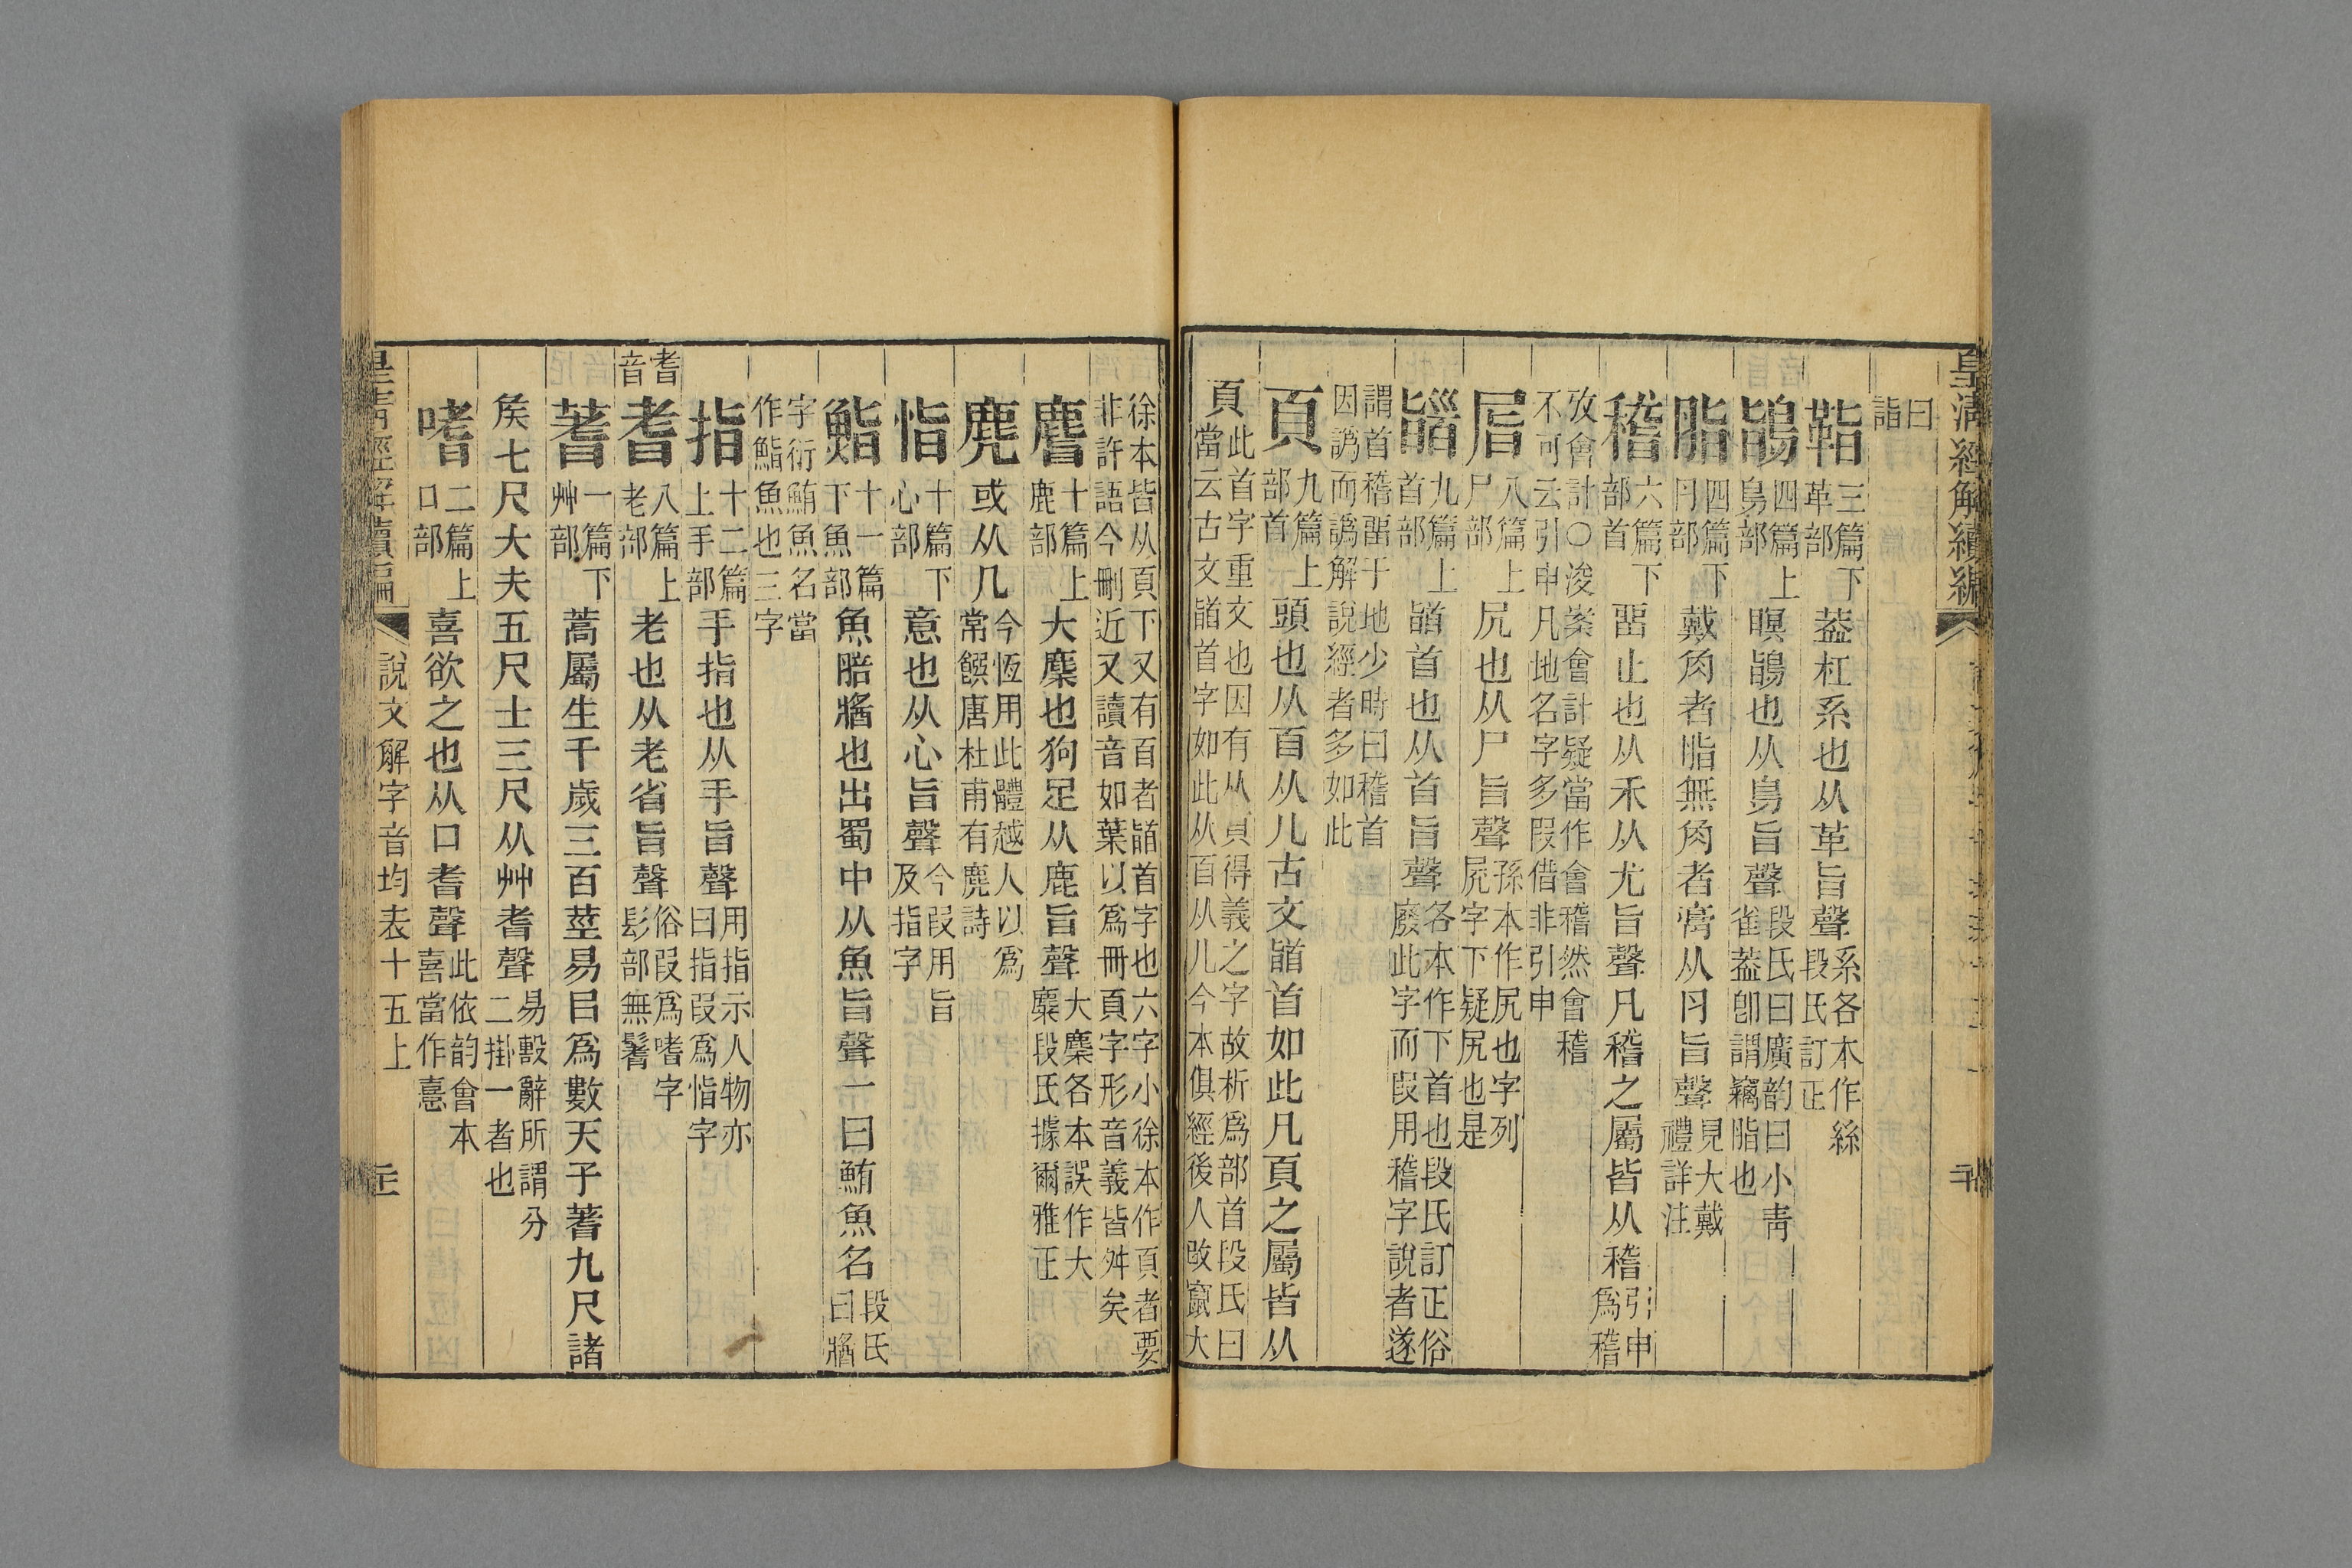 皇清經解續編
曰
詣
鞊三篇下革部葢杠系也从革旨聲系各本作絲段氏訂正
鴲四篇上鳥部瞑鴲也从鳥旨聲段氏曰廣韵曰小青雀葢卽謂竊脂也
脂四篇下⺼部戴角者脂無角者膏从⺼旨聲見大戴禮詳注
稽六篇下部首畱止也从禾从尤旨聲凡稽之屬皆从稽引申爲稽
攷會計○浚案會計疑當作會稽然會稽不可云引申凡地名字多叚借非引申
㞓八篇上尸部尻也从尸旨聲孫本作尻也字列㞓字下疑尻也是
䭫九篇上首部䭫首也从首旨聲各本作下首也段氏訂正俗廢此字而叚用稽字說者遂
謂首稽畱于地少時曰稽首因譌而譌解說經者多如此
頁九篇上部首頭也从𦣻从儿古文䭫首如此凡頁之屬皆从
頁此首字重文也因有从頁得義之字故析爲部首段氏曰當云古文䭫首字如此从𦣻从儿今本俱經後人改竄大
徐本皆从頁下又有𦣻者䭫首字也六字小徐本作頁者要非許語今刪近又讀音如葉以爲冊頁字形音義皆舛矣
麔十篇上鹿部大麋也狗足从鹿旨聲大麋各本誤作大麋段氏據爾雅正
麂或从几今恆用此體越人以爲常饌唐杜甫有麂詩
恉十篇下心部意也从心旨聲今叚用旨及指字
鮨十一篇下魚部魚䏽牆也出蜀中从魚旨聲一曰鮪魚名段氏曰牆
字衍鮪魚名當作鮨魚也三字
指十二篇上手部手指也从手旨聲用指示人物亦曰指叚爲恉字
耆音
耆八篇上老部老也从老省旨聲俗叚爲嗜字髟部無鬐
蓍一篇下艸部蒿屬生千歲三百莖易㠯爲數天子蓍九尺諸
矦七尺大夫五尺士三尺从艸耆聲易毄辭所謂分二掛一者也
嗜二篇上口部喜欲之也从口耆聲此依韵會本喜當作憙
皇清經解續編
說文解字音均表十五上